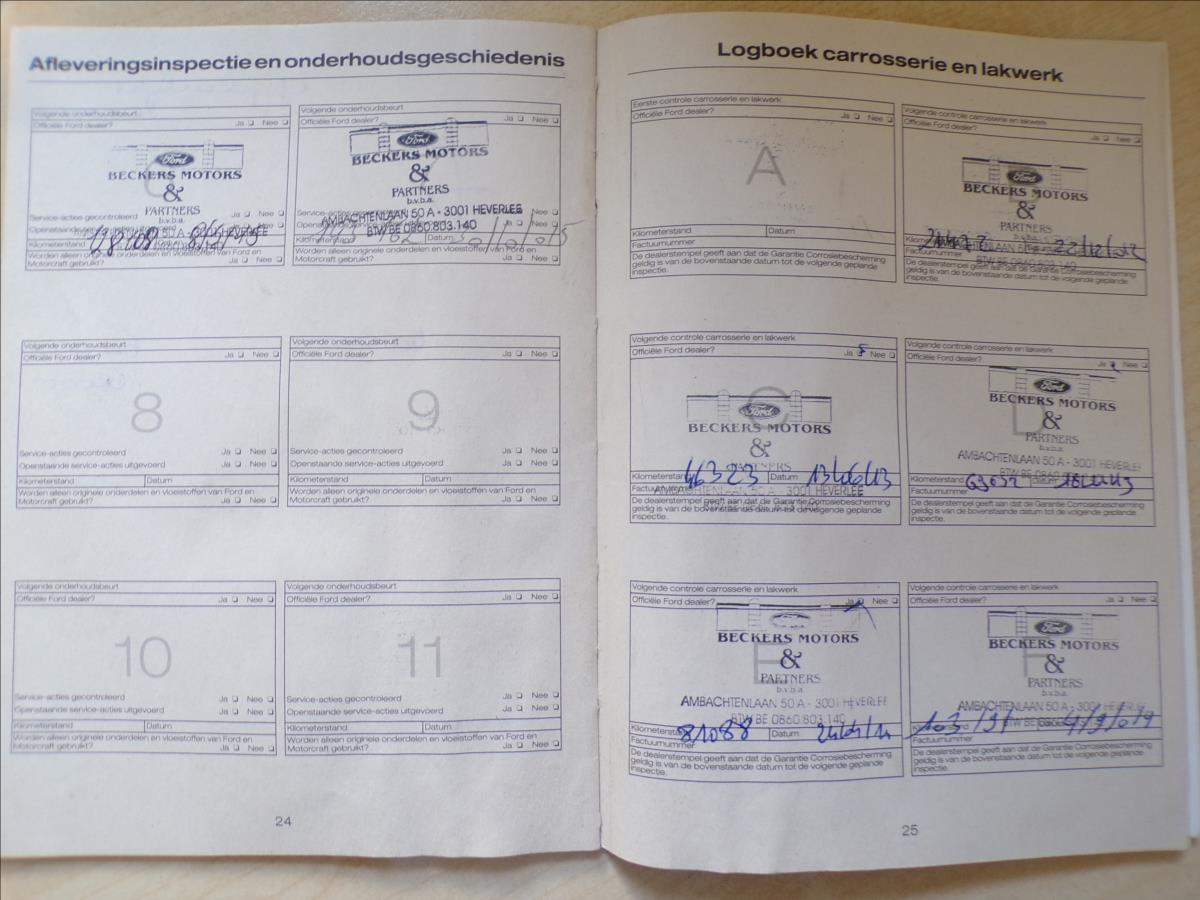 Afleveringsinspectie en onderhoudsgeschiedenis
Volgende onderhoudsbeurt
Officiële Ford dealer? Ja Nee
Ford
BECKERS MOTORS
&
PARTNERS
b.v.b.a.
Service-acties gecontroleerd Ja Nee
Kilometerstand
Worden alleen originele onderdelen en vloeistoffen van Ford en
Motorcraft gebruikt? Ja Nee
Volgende onderhoudsbeurt
Officiële Ford dealer? Ja Nee
Ford
BECKERS MOTORS
&
PARTNERS
b.v.b.a.
AMBACHTENLAAN 50 A - 3001 HEVERLEE
BTW BE 0860.803.140
Kilometerstand Datum
Worden alleen originele onderdelen en vloeistoffen van Ford en
Motorcraft gebruikt? Ja Nee
Volgende onderhoudsbeurt
Officiële Ford dealer? Ja Nee
8
Service-acties gecontroleerd Ja Nee
Openstaande service-acties uitgevoerd Ja Nee
Kilometerstand Datum
Worden alleen originele onderdelen en vloeistoffen van Ford en
Motorcraft gebruikt? Ja Nee
Volgende onderhoudsbeurt
Officiële Ford dealer? Ja Nee
9
Service-acties gecontroleerd Ja Nee
Openstaande service-acties uitgevoerd Ja Nee
Kilometerstand Datum
Worden alleen originele onderdelen en vloeistoffen van Ford en
Motorcraft gebruikt? Ja Nee
Volgende onderhoudsbeurt
Officiële Ford dealer? Ja Nee
10
Service-acties gecontroleerd Ja Nee
Openstaande service-acties uitgevoerd Ja Nee
Kilometerstand Datum
Worden alleen originele onderdelen en vloeistoffen van Ford en
Motorcraft gebruikt? Ja Nee
Volgende onderhoudsbeurt
Officiële Ford dealer? Ja Nee
11
Service-acties gecontroleerd Ja Nee
Openstaande service-acties uitgevoerd Ja Nee
Kilometerstand Datum
Worden alleen originele onderdelen en vloeistoffen van Ford en
Motorcraft gebruikt? Ja Nee
24
Logboek carrosserie en lakwerk
Eerste controle carrosserie en lakwerk
Officiële Ford dealer? Ja Nee
A
Kilometerstand Datum
Factuurnummer
De dealerstempel geeft aan dat de Garantie Corrosiebescherming
geldig is van de bovenstaande datum tot de volgende geplande
inspectie.
Volgende controle carrosserie en lakwerk
Officiële Ford dealer? Ja Nee
Ford
BECKERS MOTORS
&
PARTNERS
b.v.b.a.
Factuurnummer
BTW BE 0860.803.140
De dealerstempel geeft aan dat de Garantie Corrosiebescherming
geldig is van de bovenstaande datum tot de volgende geplande
inspectie.
Volgende controle carrosserie en lakwerk
Officiële Ford dealer? Ja Nee
C
Ford
BECKERS MOTORS
&
PARTNERS
Kilometerstand 46323 Datum 13/06/13
AMBACHTENLAAN 50 A - 3001 HEVERLEE
De dealerstempel geeft aan dat de Garantie Corrosiebescherming
geldig is van de bovenstaande datum tot de volgende geplande
inspectie.
Volgende controle carrosserie en lakwerk
Officiële Ford dealer? Ja Nee
D
Ford
BECKERS MOTORS
&
PARTNERS
AMBACHTENLAAN 50 A - 3001 HEVERLEE
BTW BE 0860.803.140
Kilometerstand 63032 Datum
Factuurnummer
De dealerstempel geeft aan dat de Garantie Corrosiebescherming
geldig is van de bovenstaande datum tot de volgende geplande
inspectie.
Volgende controle carrosserie en lakwerk
Officiële Ford dealer? Ja Nee
E
BECKERS MOTORS
&
PARTNERS
b.v.b.a.
AMBACHTENLAAN 50 A - 3001 HEVERLEE
BTW BE 0860.803.140
Kilometerstand 81088 Datum
Factuurnummer
De dealerstempel geeft aan dat de Garantie Corrosiebescherming
geldig is van de bovenstaande datum tot de volgende geplande
inspectie.
Volgende controle carrosserie en lakwerk
Officiële Ford dealer? Ja Nee
F
Ford
BECKERS MOTORS
&
PARTNERS
b.v.b.a.
AMBACHTENLAAN 50 A - 3001 HEVERLEE
Factuurnummer
De dealerstempel geeft aan dat de Garantie Corrosiebescherming
geldig is van de bovenstaande datum tot de volgende geplande
inspectie.
25